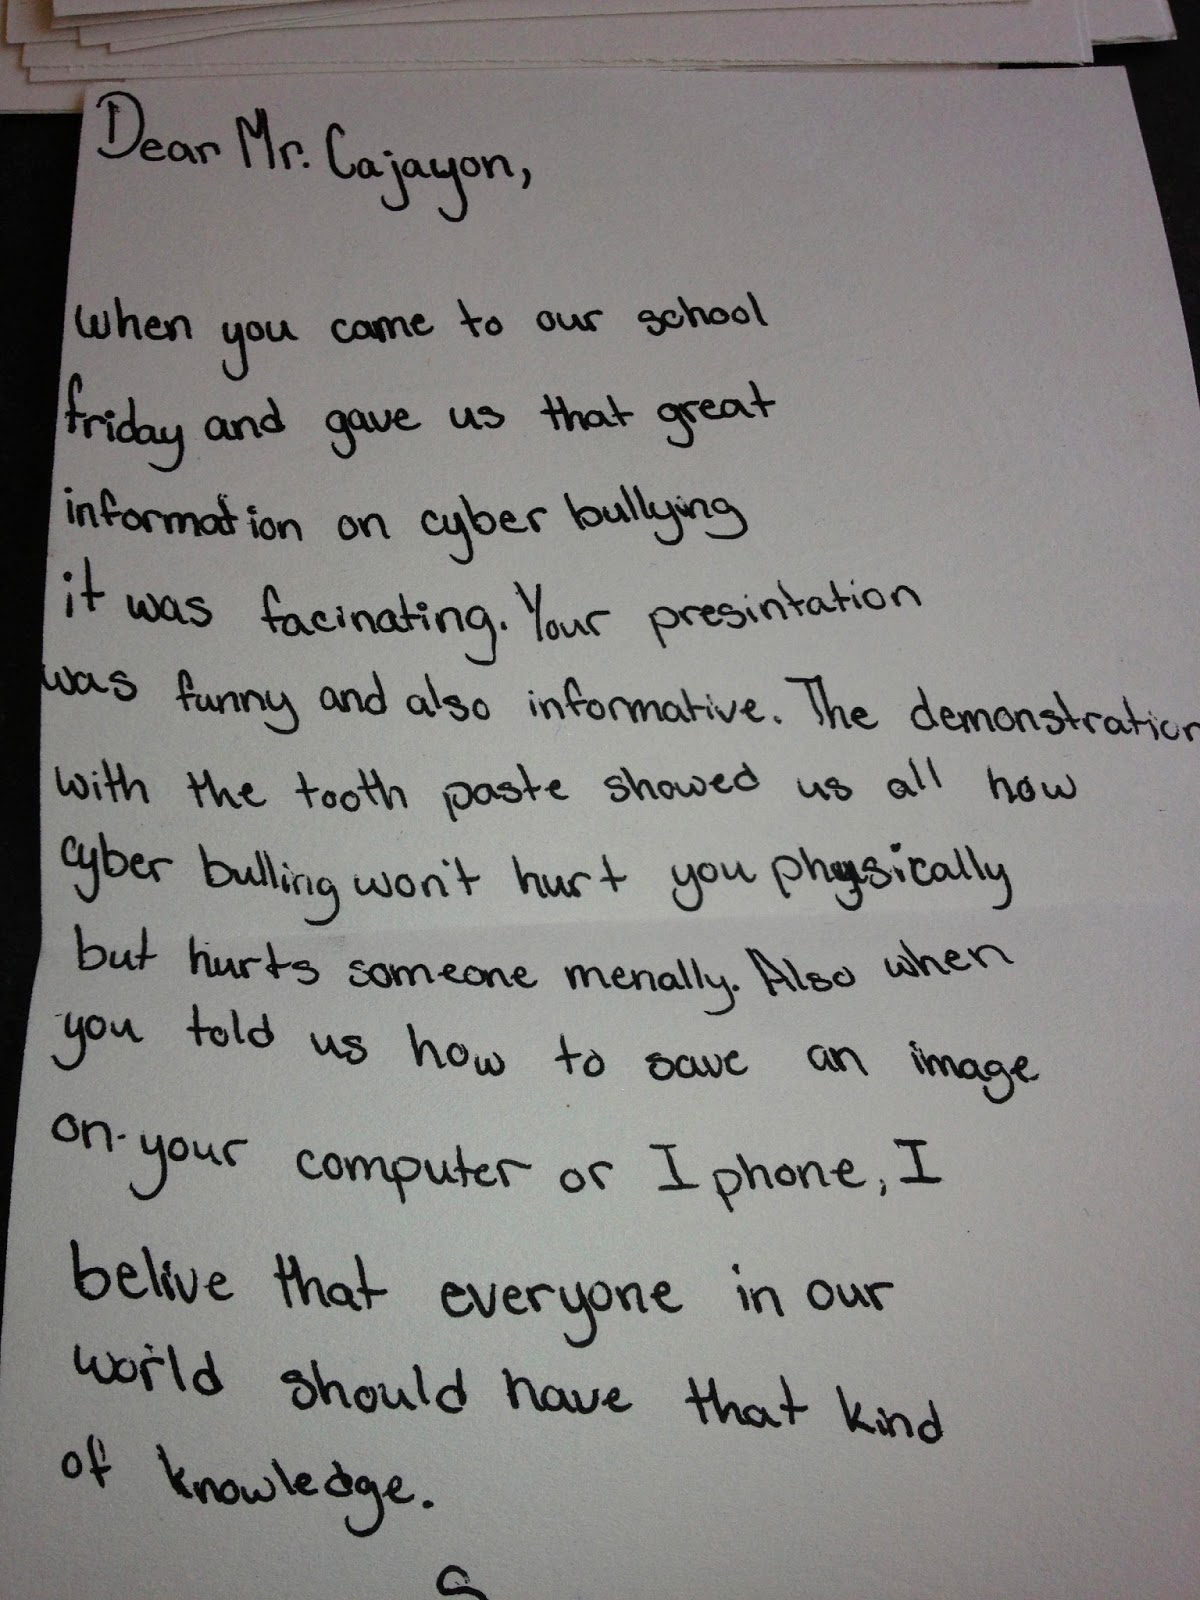 Dear Mr. Cajayon,
When you came to our school
friday and gave us that great
information on cyber bullying
it was facinating. Your presintation
was funny and also informative. The demonstration
with the tooth paste showed us all how
cyber bulling won't hurt you physically
but hurts someone menally. Also when
you told us how to save an image
on your computer or I phone, I
belive that everyone in our
world should have that kind
of knowledge.